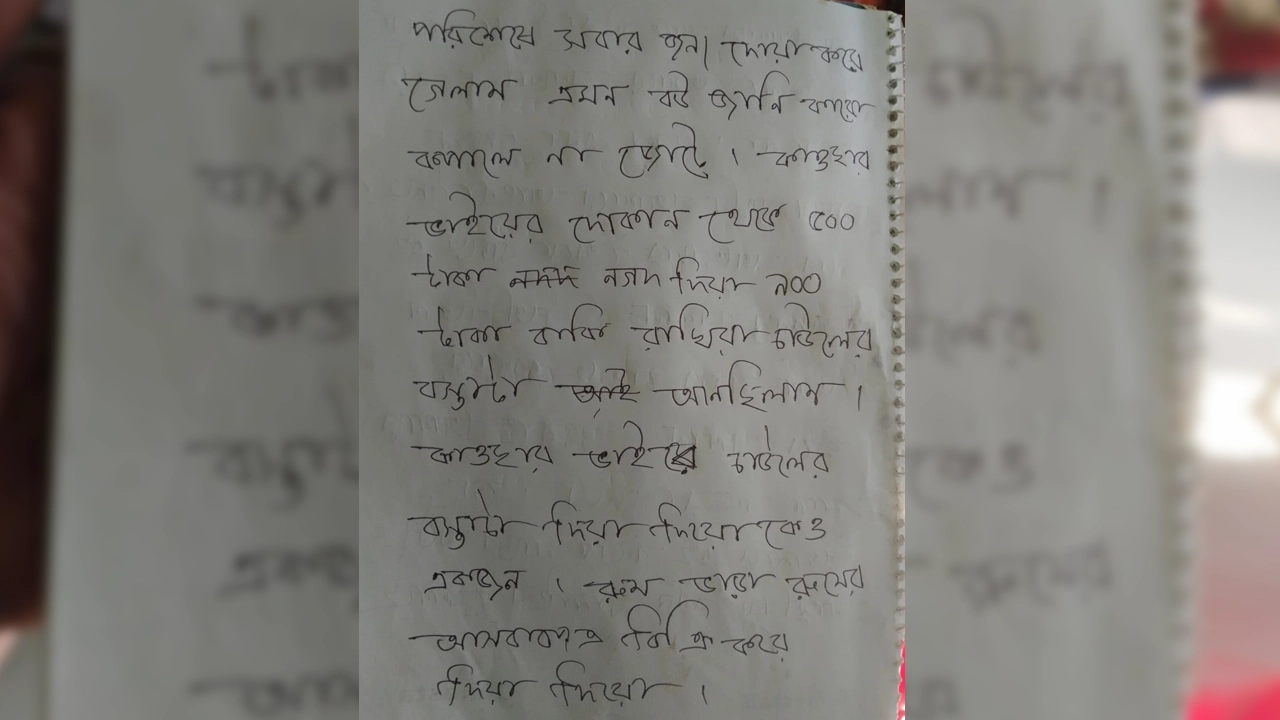 পরিশেষে সবার জন্য দোয়া করে
গেলাম এমন বউ জানি কারো
কপালে না জোটে । কাওছার
ভাইয়ের দোকান থেকে ৫০০
টাকা নগদ দিয়া ৯০০
টাকা বাকি রাখিয়া চাউলের
বস্তাটা আনছিলাম ।
কাওছার ভাইরে চাউলের
বস্তাটা দিয়া দিয়ো কেও
একজন । রুম ভাড়া রুমের
আসবাবপত্র বিক্রি করে
দিয়া দিয়ো ।